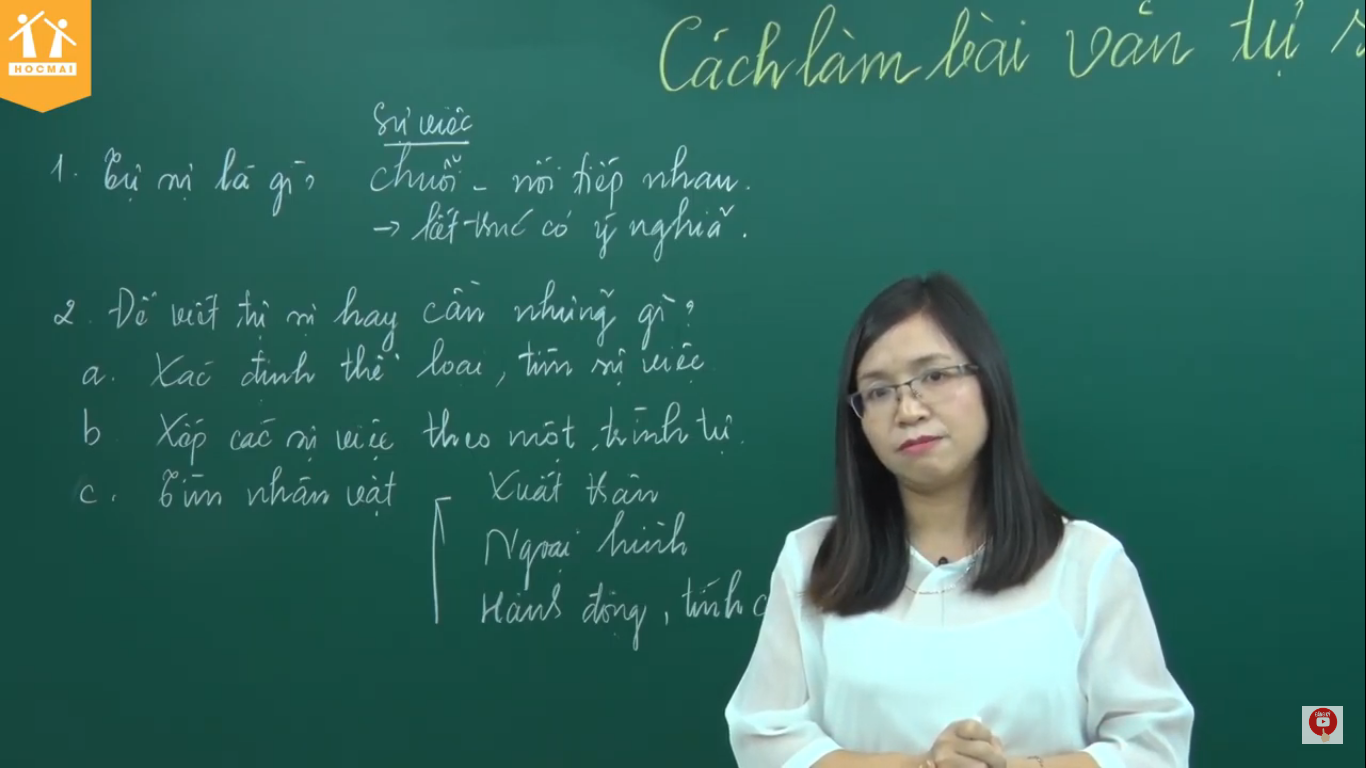 HOCMAI
Cách làm bài văn tự s
Sự việc
1. Tự sự là gì? chuỗi - nối tiếp nhau.
→ kết thúc có ý nghĩa.
2. Để viết tự sự hay cần những gì?
a. Xác định thể loại, tìm sự việc
b Xếp các sự việc theo một trình tự.
c. Tìm nhân vật Xuất thân
Ngoại hình
Hành động, tính c